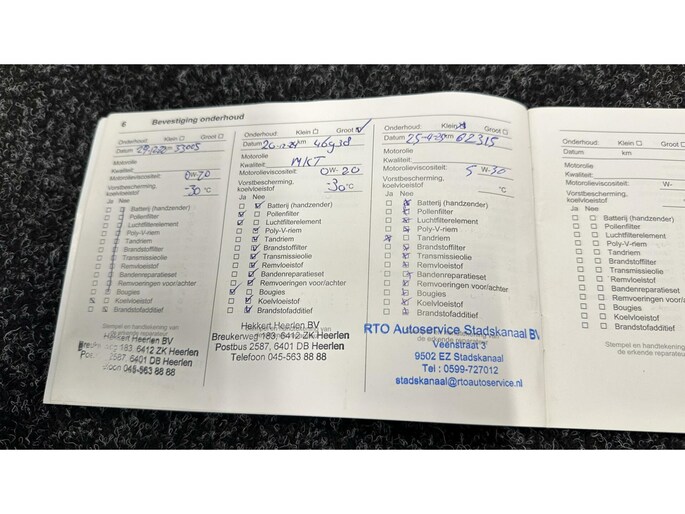 6 Bevestiging onderhoud
Onderhoud: Klein ☐ Groot ☐
Datum km 33005
Motorolie
Kwaliteit:
Motorolieviscositeit: 0W-20
Vorstbescherming,
koelvloeistof -30 °C
Ja Nee
Batterij (handzender)
Pollenfilter
Luchtfilterelement
Poly-V-riem
Tandriem
Brandstoffilter
Transmissieolie
Remvloeistof
Bandenreparatieset
Remvoeringen voor/achter
Bougies
Koelvloeistof
Brandstofadditief
Stempel en handtekening van
de erkende reparateur
Hekkert Heerlen BV
Breukerweg 183, 6412 ZK Heerlen
Postbus 2587, 6401 DB Heerlen
Telefoon 045-563 88 88
Onderhoud: Klein ☐ Groot ☑
Datum km 46938
Motorolie
Kwaliteit: MKT
Motorolieviscositeit: 0W-20
Vorstbescherming,
koelvloeistof -30 °C
Ja Nee
Batterij (handzender)
Pollenfilter
Luchtfilterelement
Poly-V-riem
Tandriem
Brandstoffilter
Transmissieolie
Remvloeistof
Bandenreparatieset
Remvoeringen voor/achter
Bougies
Koelvloeistof
Brandstofadditief
Hekkert Heerlen BV
Breukerweg 183, 6412 ZK Heerlen
Postbus 2587, 6401 DB Heerlen
Telefoon 045-563 88 88
Onderhoud: Klein ☒ Groot ☐
Datum 25-4-25 km 62315
Motorolie
Kwaliteit:
Motorolieviscositeit: 5W-30
Vorstbescherming,
koelvloeistof °C
Ja Nee
Batterij (handzender)
Pollenfilter
Luchtfilterelement
Poly-V-riem
Tandriem
Brandstoffilter
Transmissieolie
Remvloeistof
Bandenreparatieset
Remvoeringen voor/achter
Bougies
Koelvloeistof
Brandstofadditief
RTO Autoservice Stadskanaal BV
Veenstraat 3
9502 EZ Stadskanaal
Tel : 0599-727012
stadskanaal@rtoautoservice.nl
Onderhoud: Klein ☐ Groot
Datum km
Motorolie
Kwaliteit:
Motorolieviscositeit: W-
Vorstbescherming,
koelvloeistof
Ja Nee
Batterij (handzender)
Pollenfilter
Luchtfilterelement
Poly-V-riem
Tandriem
Brandstoffilter
Transmissieolie
Remvloeistof
Bandenreparatieset
Remvoeringen voor/achter
Bougies
Koelvloeistof
Brandstofadditief
Stempel en handtekening
de erkende reparateur